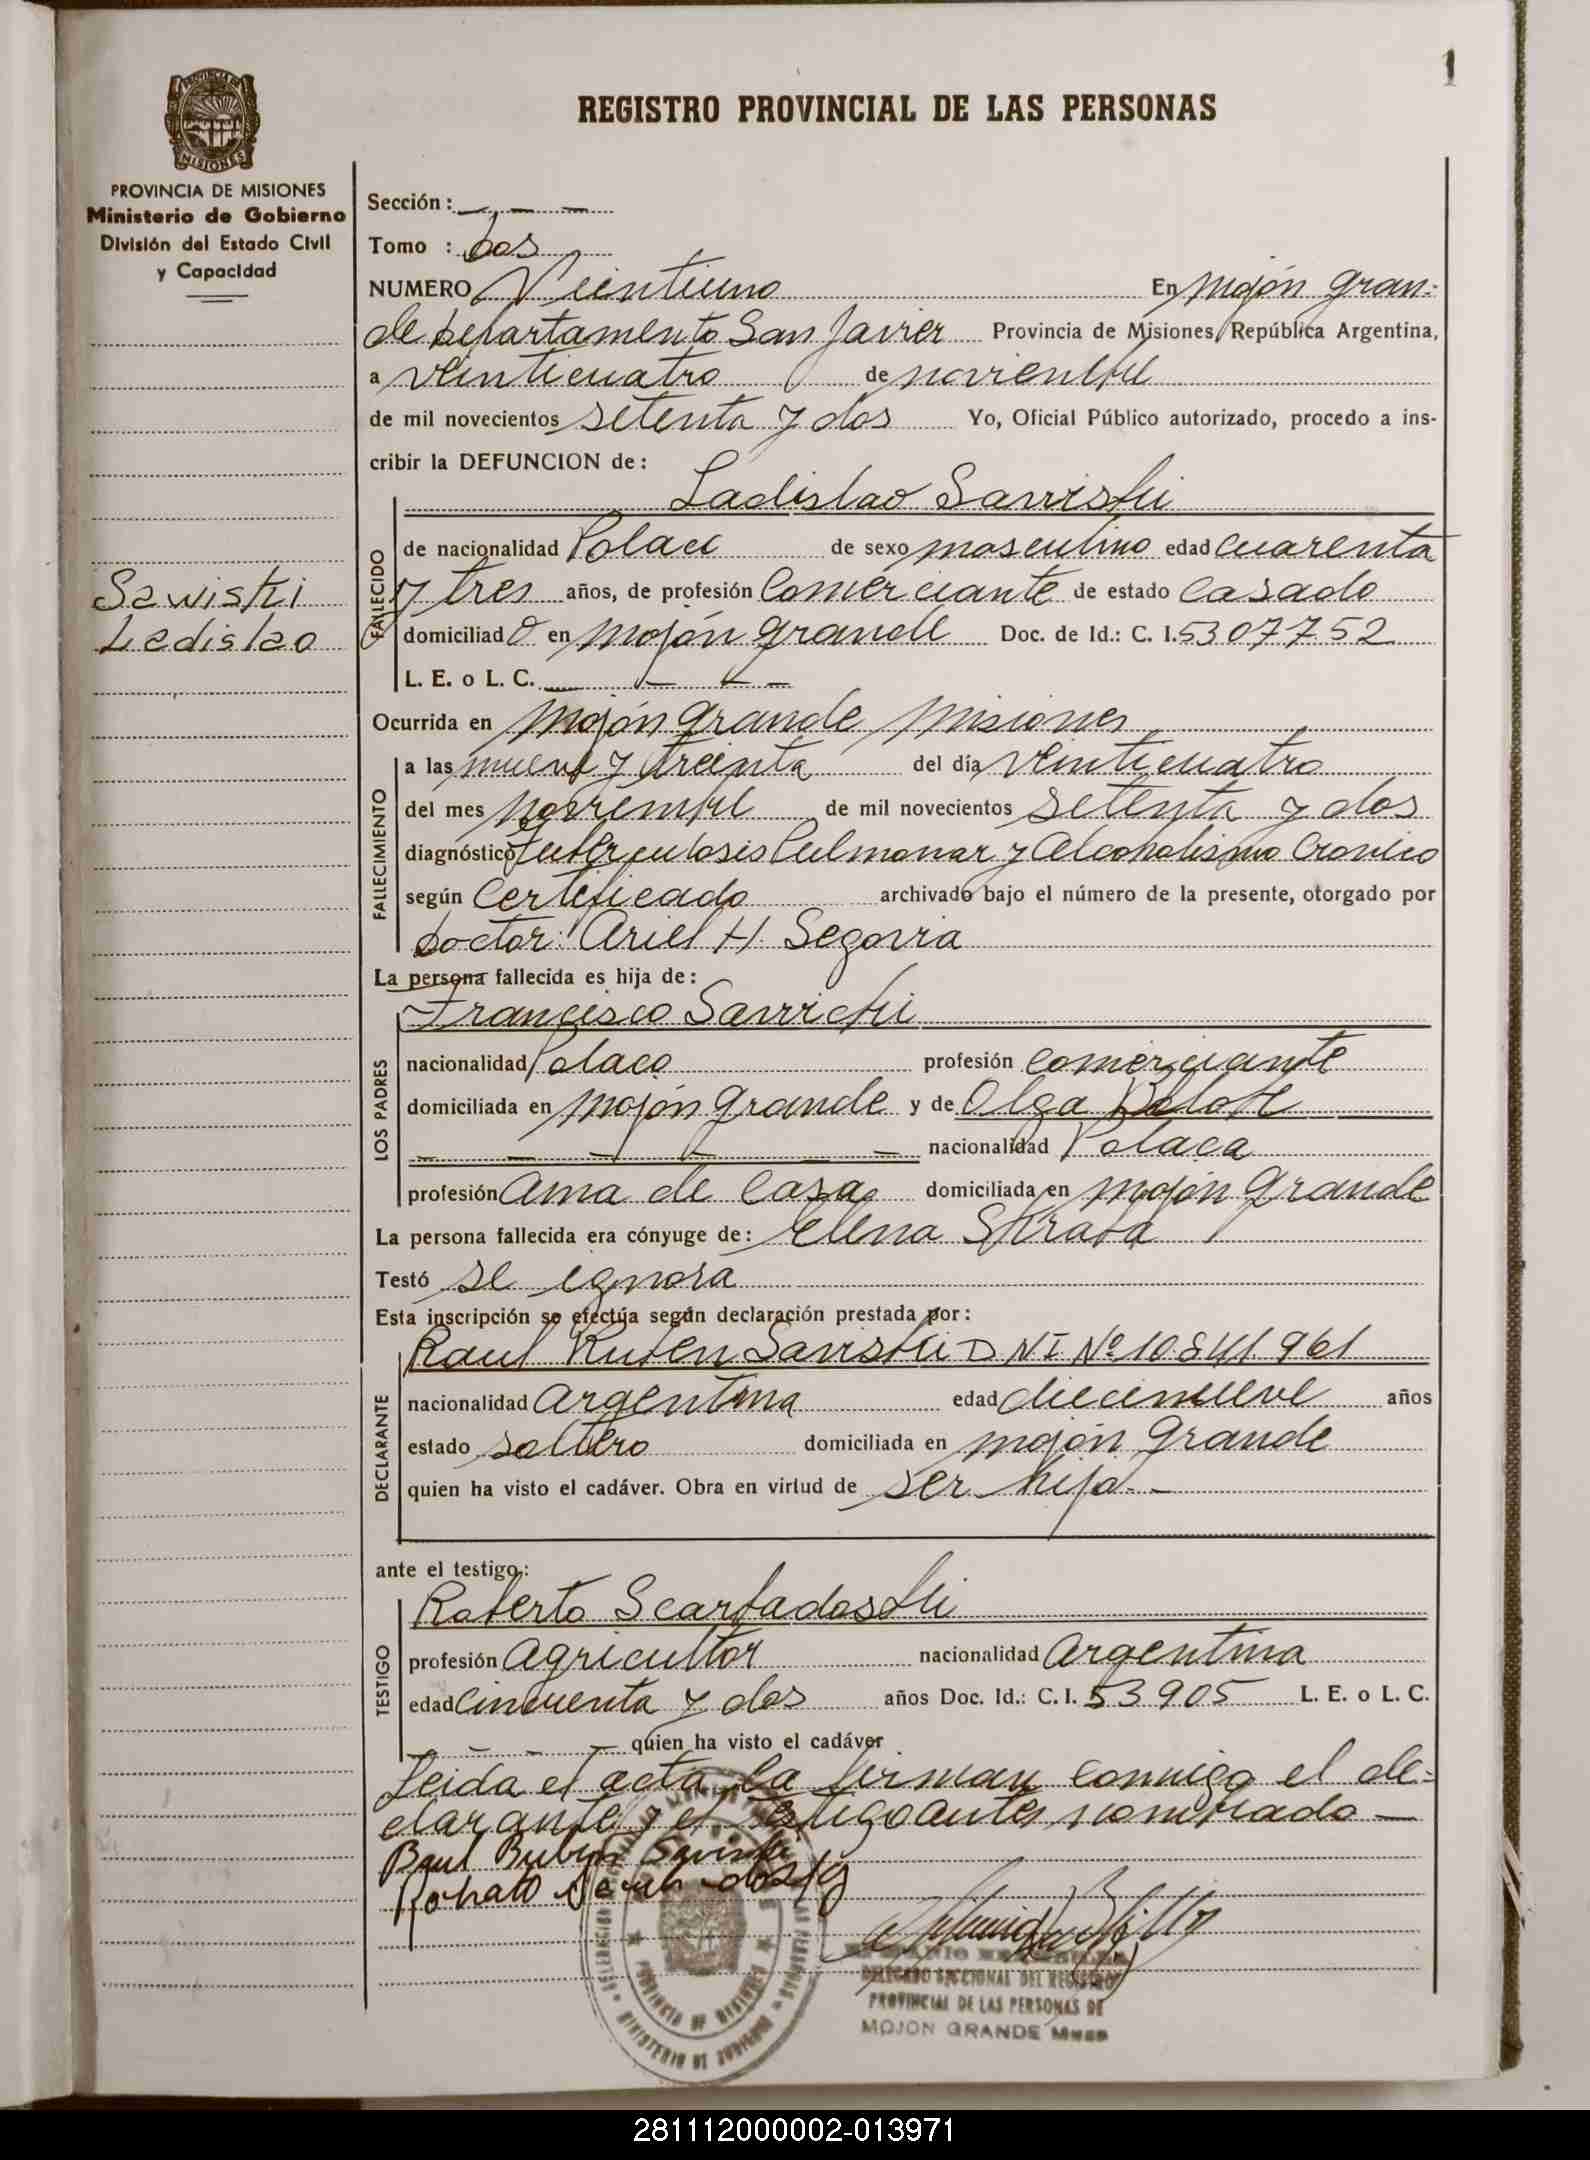 1
REGISTRO PROVINCIAL DE LAS PERSONAS
PROVINCIA DE MISIONES
Ministerio de Gobierno
División del Estado Civil
y Capacidad
Sección: _ _ _
Tomo : Dos
NUMERO Veintiuno En Mojón Gran-
de Departamento San Javier Provincia de Misiones, República Argentina,
a veinticuatro de noviembre
de mil novecientos setenta y dos Yo, Oficial Público autorizado, procedo a ins-
cribir la DEFUNCION de:
Ladislao Saviski
Sawiski
Ladislao
FALLECIDO
de nacionalidad Polaca de sexo masculino edad cuarenta
y tres años, de profesión Comerciante de estado casado
domiciliado en Mojón Grande Doc. de Id.: C. I. 5307752
L. E. o L. C. _ _ _ _
Ocurrida en Mojón Grande Misiones
FALLECIMIENTO
a las nueve y treinta del día veinticuatro
del mes noviembre de mil novecientos setenta y dos
diagnóstico Tuberculosis Pulmonar y Alcoholismo Cronico
según Certificado archivado bajo el número de la presente, otorgado por
Doctor: Ariel H. Segovia
La persona fallecida es hija de:
LOS PADRES
Francisco
nacionalidad Polaco profesión comerciante
domiciliada en Mojón Grande y de Olga
_ _ _ _ _ _ nacionalidad Polaca
profesión Ama de Casa domiciliada en Mojón Grande
La persona fallecida era cónyuge de: Elena Skraba
Testó se ignora
Esta inscripción se efectúa según declaración prestada por:
DECLARANTE
Raul Ruben Saviski D N I Nº 10.841.961
nacionalidad Argentina edad diecinueve años
estado soltero domiciliada en Mojón Grande
quien ha visto el cadáver. Obra en virtud de ser hijo.-
ante el testigo:
TESTIGO
Roberto Scarbadoski
profesión Agricultor nacionalidad Argentina
edad cincuenta y dos años Doc. Id.: C. I. 53905 L. E. o L. C.
_ _ _ _ quien ha visto el cadáver
Leida el acta la firman conmigo el de-
clarante y el testigo antes nombrado —
Raul Ruben Saviski
DELEGADO SECCIONAL DEL REGISTRO
PROVINCIAL DE LAS PERSONAS DE
MOJON GRANDE
PROVINCIA DE MISIONES
MINISTERIO DE GOBIERNO
281112000002-013971